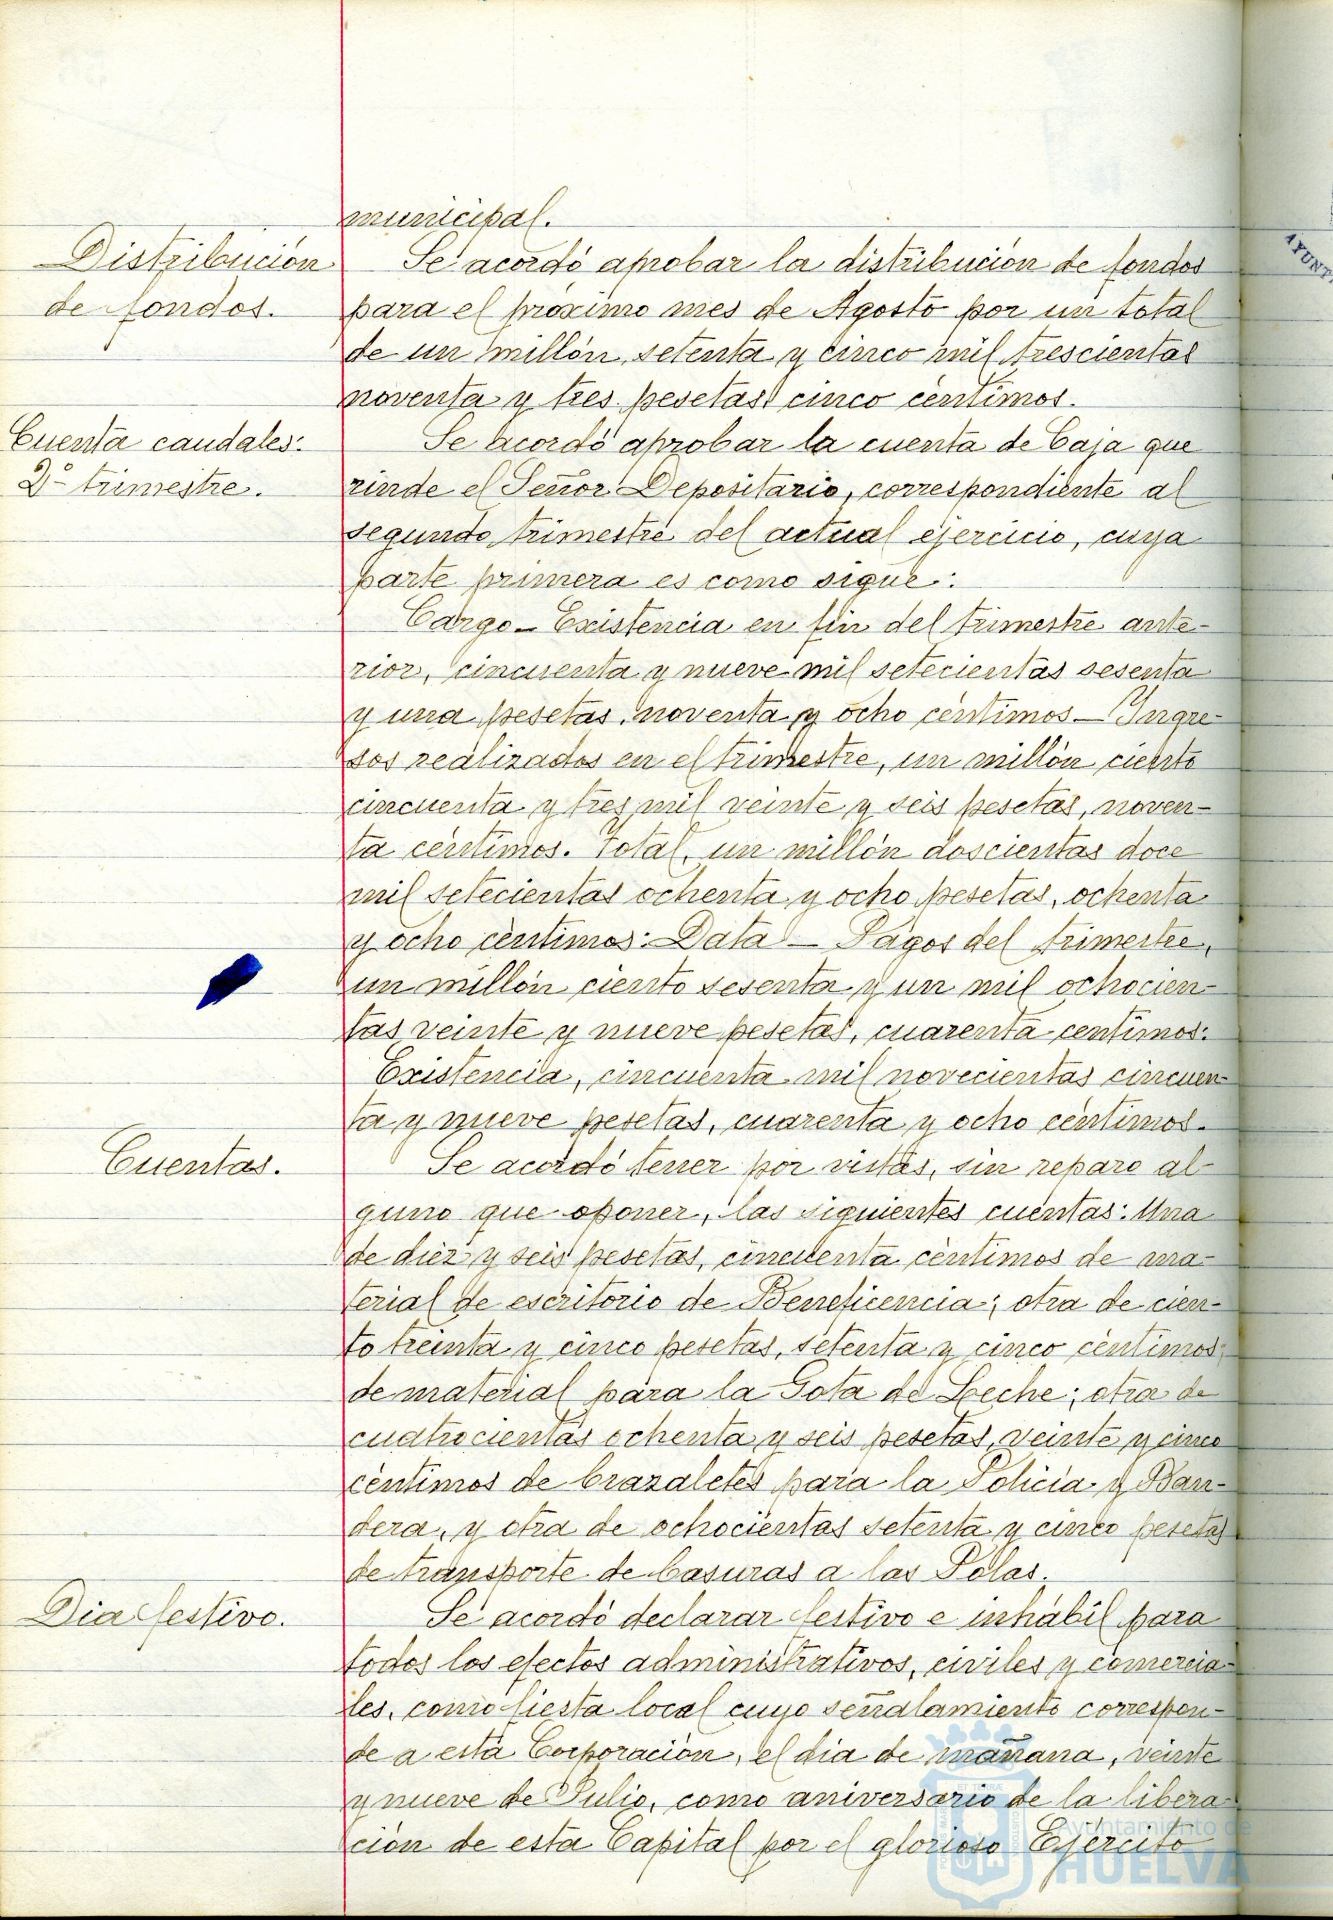 municipal.
Distribución
de fondos.
Se acordó aprobar la distribución de fondos
para el próximo mes de Agosto por un total
de un millón setenta y cinco mil trescientas
noventa y tres pesetas cinco céntimos.
Cuenta caudales:
2º trimestre.
Se acordó aprobar la cuenta de Caja que
rinde el Señor Depositario, correspondiente al
segundo trimestre del actual ejercicio, cuya
parte primera es como sigue:
Cargo - Existencia en fin del trimestre ante-
rior, cincuenta y nueve mil setecientas sesenta
y una pesetas, noventa y ocho céntimos - Ingre-
sos realizados en el trimestre, un millón ciento
cincuenta y tres mil veinte y seis pesetas, noven-
ta céntimos. Total, un millón doscientas doce
mil setecientas ochenta y ocho pesetas, ochenta
y ocho céntimos: Data - Pagos del trimestre,
un millón ciento sesenta y un mil ochocien-
tas veinte y nueve pesetas, cuarenta centimos:
Existencia, cincuenta mil novecientas cincuen-
ta y nueve pesetas, cuarenta y ocho céntimos.
Cuentas.
Se acordó tener por vistas, sin reparo al-
guno que oponer, las siguientes cuentas: Una
de diez y seis pesetas, cincuenta céntimos de ma-
terial de escritorio de Beneficencia; otra de cien-
to treinta y cinco pesetas, setenta y cinco céntimos,
de material para la Gota de Leche; otra de
cuatrocientas ochenta y seis pesetas, veinte y cinco
céntimos de brazaletes para la Policía y Ban-
dera, y otra de ochocientas setenta y cinco pesetas
de transporte de basuras a las Polas.
Dia festivo.
Se acordó declarar festivo e inhábil para
todos los efectos administrativos, civiles y comercia-
les, como fiesta local cuyo señalamiento correspon-
de a esta Corporación, el día de mañana, veinte
y nueve de Julio, como aniversario de la libera-
ción de esta Capital por el glorioso Ejército
Ayuntamiento de
HUELVA